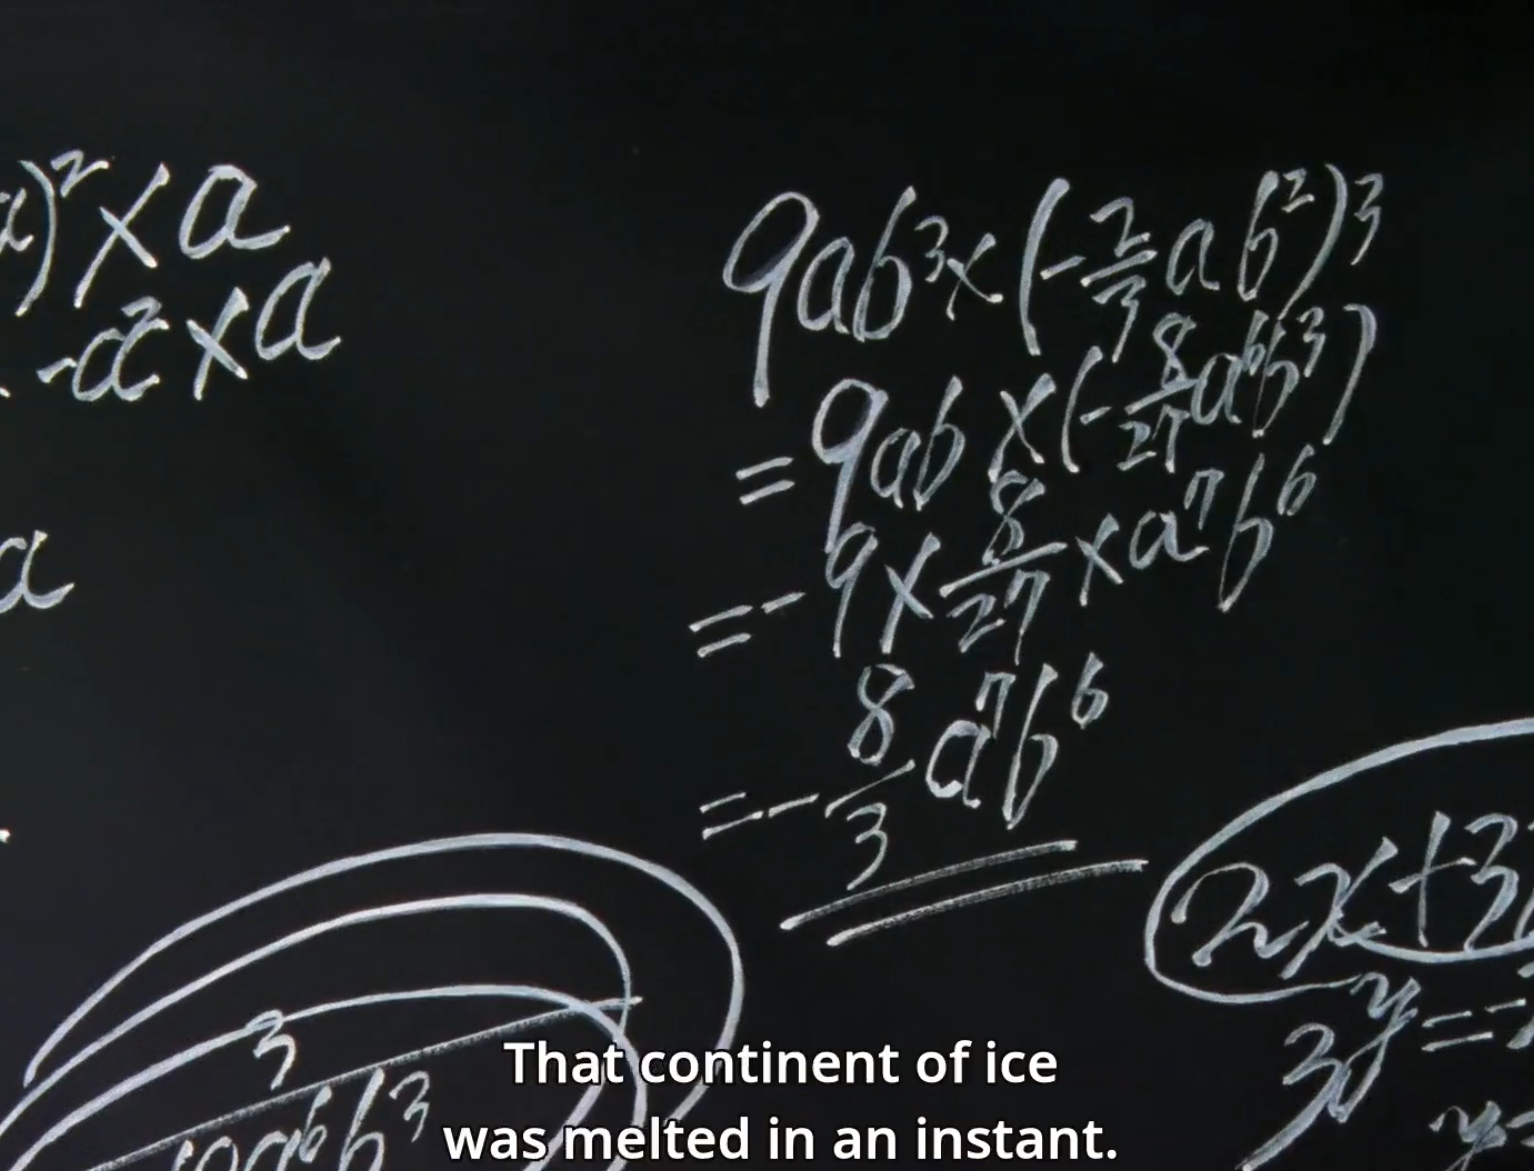 )² × a
-a² × a
a
9ab³ × (-2/3 ab²)³
= 9ab × (-8/27 a⁶b³)
= -9 × 8/27 × a⁷b⁶
= -8/3 a⁷b⁶
2x+3
3y =
3
a⁶b³
That continent of ice
was melted in an instant.